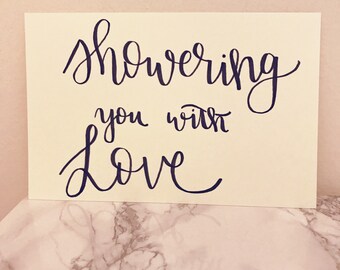 Showering
you with
Love